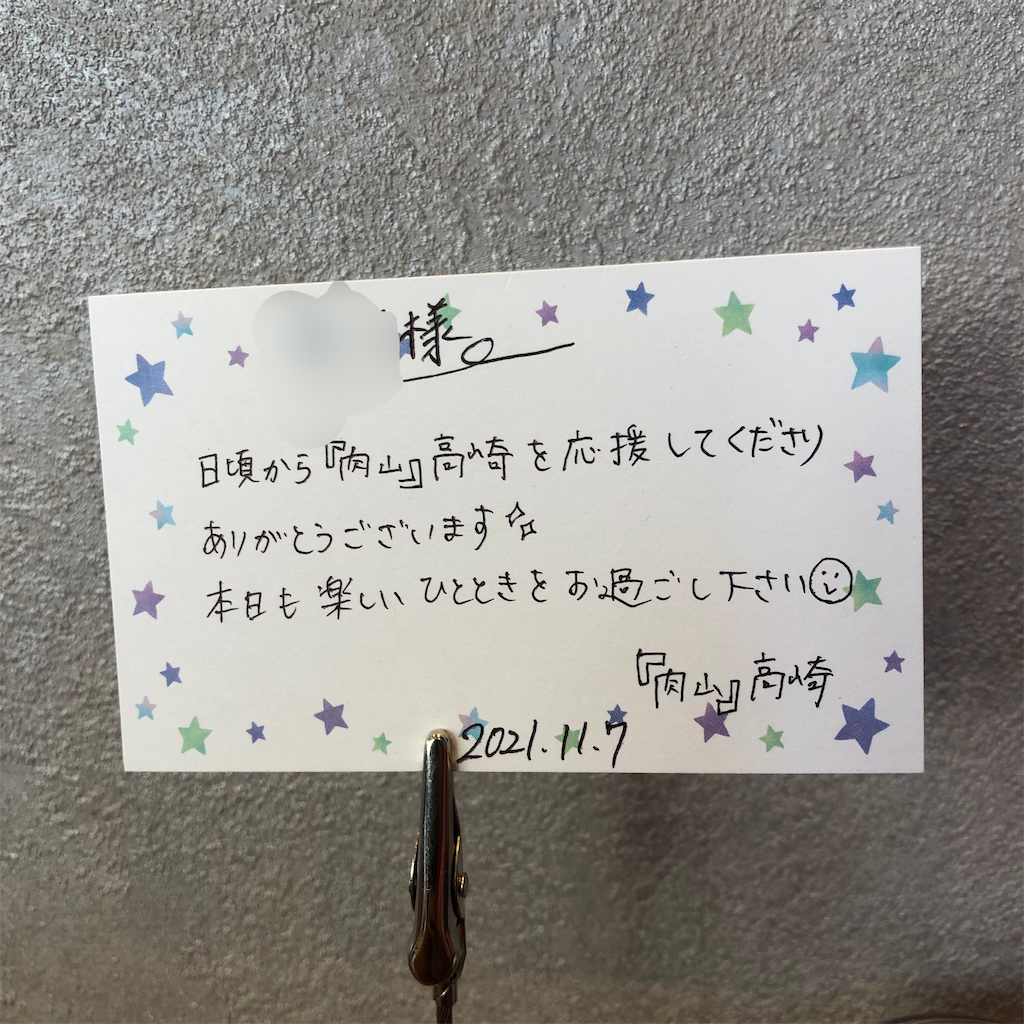 様
日頃から『肉山』高崎を応援してくださり
ありがとうございます☆
本日も楽しいひとときをお過ごし下さい☺
『肉山』高崎
2021.11.7